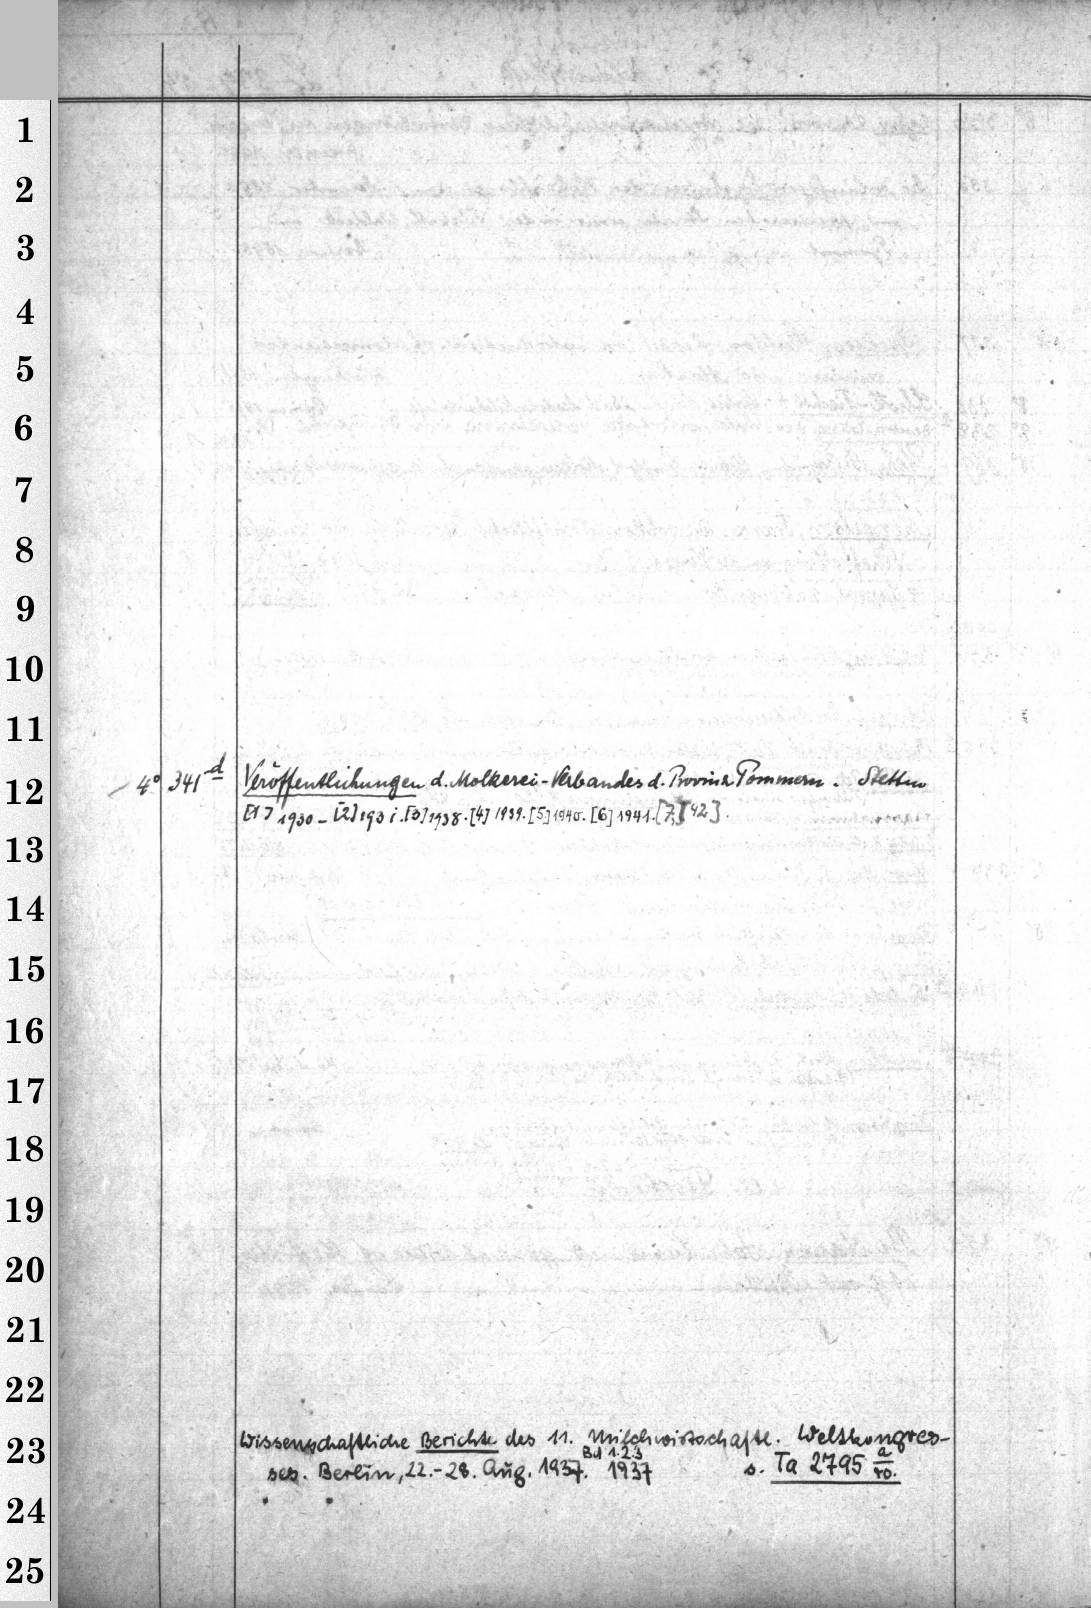 1
2
3
4
5
6
7
8
9
10
11
12
4° 341 d Veröffentlichungen d. Molkerei-Verbandes d. Provinz Pommern. Stettin
[1] 1930 - [2] 193 i. [3] 1938. [4] 1939. [5] 1940. [6] 1941. [7] [42].
13
14
15
16
17
18
19
20
21
22
23
Wissenschaftliche Berichte des 11. Milchwirtschaftl. Weltkongres-
Bd 1.2.3
ses. Berlin, 22.-28. Aug. 1937. 1937 s. Ta 2795 a/ro.
24
25